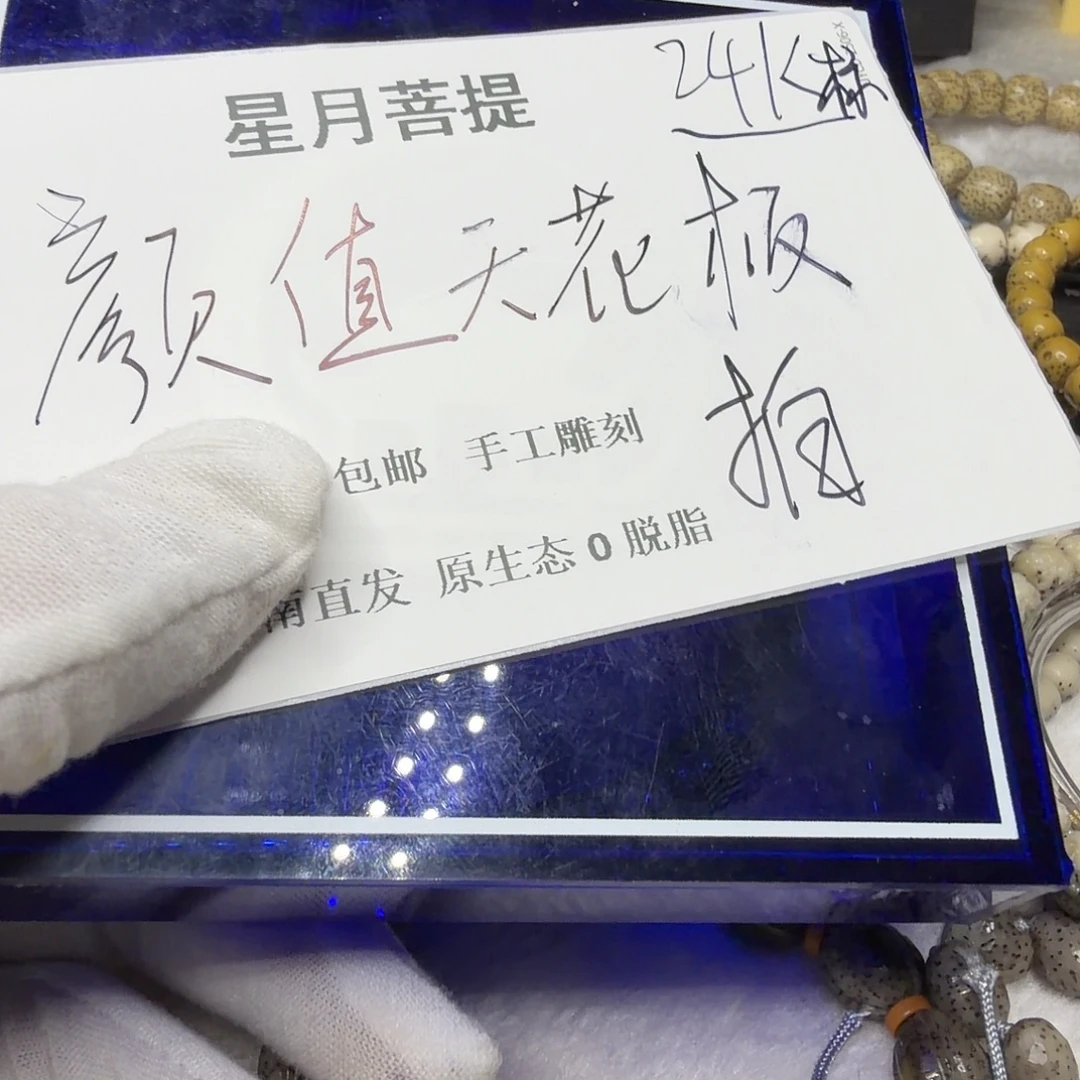 星月菩提
24K标
颜值天花板
拍
包邮 手工雕刻
南直发 原生态0脱脂